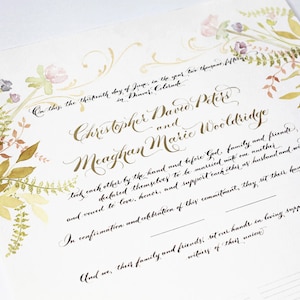 On this the thirteenth day of June, in the year two thousand fifteen
in Denver, Colorado
Christopher David Peters
and
Meaghan Marie Wooldridge
took each other by the hand and before God, family and friends,
declared themselves to be married with one another
and vowed to love, honor, and support each other as husband and
In confirmation and celebration of this commitment, they set their
And we, their family and friends, set our hands in loving
witness of their union